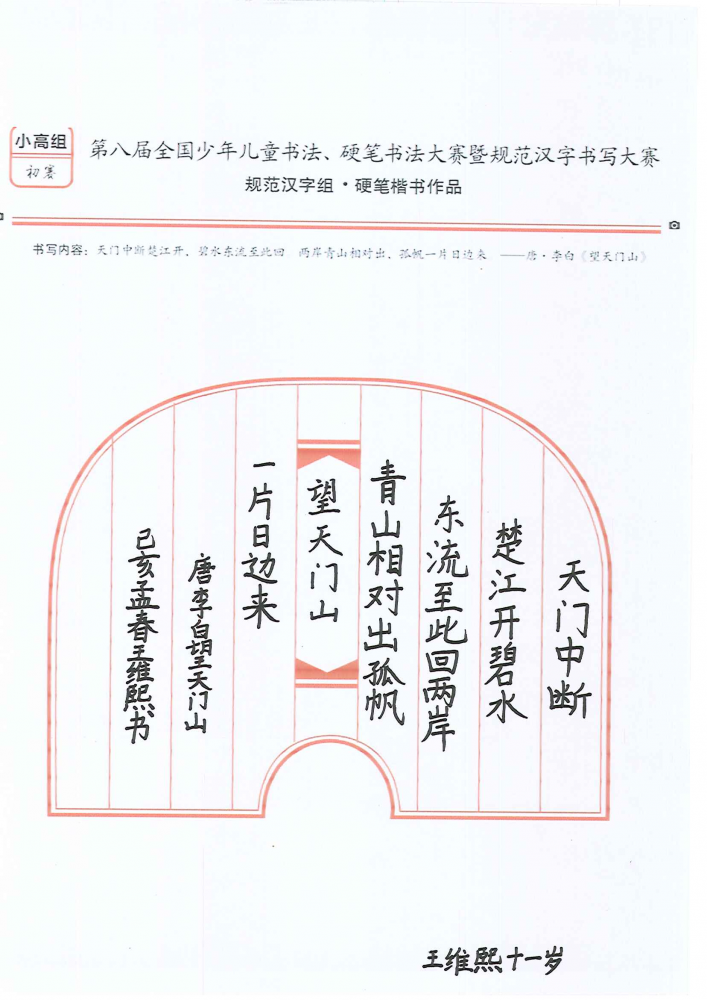 小高组
初赛
第八届全国少年儿童书法、硬笔书法大赛暨规范汉字书写大赛
规范汉字组·硬笔楷书作品
书写内容：天门中断楚江开，碧水东流至此回 两岸青山相对出，孤帆一片日边来 ——唐·李白《望天门山》
天门中断
楚江开碧水
东流至此回两岸
青山相对出孤帆
望天门山
一片日边来
唐李白望天门山
己亥孟春王维熙书
王维熙十一岁